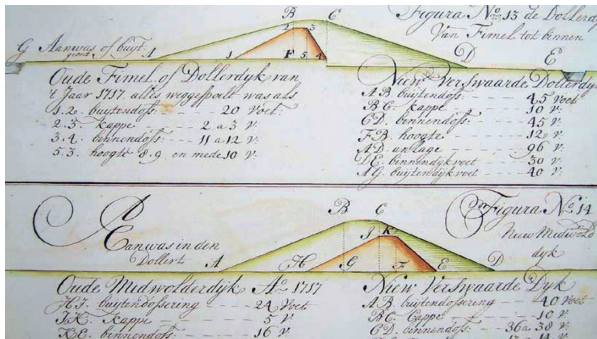 B C
Figura No. 13 de Dollerd
Van Fimel tot binnen
G Aanwas of buyt.
A 1 2 3 F 5. 4 D E
Oude Fimel of Dollerdyk van
't Jaar 1717 alles weggespoelt was als
1.2. buytendoss. 20 Voet.
2.3. kappe 2 a 3 V.
3.4. binnendoss. 11 a 12 V.
5.3. hoogte 8.9 en mede 10 V.
Nieuw Verswaarde Dollerdyk
A.B. buytendoss. 45 Voet
B.C. kappe 10 V.
C.D. binnendoss. 45 V.
F.B. hoogte 12 V.
A.D. anlage 96 V.
D.E. binnendykvoet 30 V.
A.G. buytendykvoet 40 V.
B C
Figura No. 14
Nieuw Midwold
dyk
Aanwas in den
Dollert
A H G I K F E D
Oude Midwolderdyk Ao. 1717
H.I. buytendossering 24 Voet
I.K. kappe 5 V.
K.E. binnendoss. 16 V.
Nieuw Verswaarde Dyk
A.B. buytendossering 40 Voet
B.C. kappe 10 V.
C.D. binnendoss. 36 a 38 V.